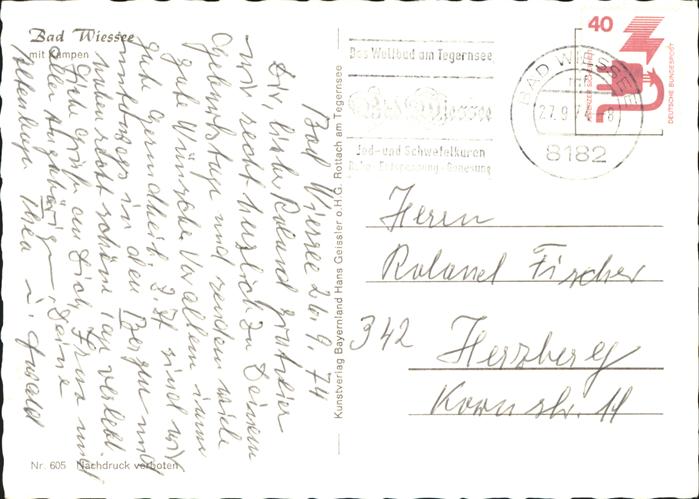 Bad Wiessee
mit Kampen
Bad Wiessee 26.9.74
Dir, lieber Roland gratulier
wir recht herzlich zu Deinem
Geburtstage und senden viele
gute Wünsche. Vor allem immer
gute Gesundheit. Z. Zt sind wir
unterwegs in den Bergen und
haben recht schöne Tage verlebt.
Dich grüßen und Frau und
allen Angehörigen Deine
Thea u. Ewald
Nr. 605 Nachdruck verboten
Kunstverlag Bayernland Hans Geissler o.H.G. Rottach am Tegernsee
Das Weltbad am Tegernsee
Bad Wiessee
Jod- und Schwefelkuren
Ruhe - Entspannung - Genesung
BAD WIESSEE
27.9.74-8
8182
40
DEUTSCHE BUNDESPOST
Herrn
Roland Fischer
342 Herzberg
Kornstr. 11